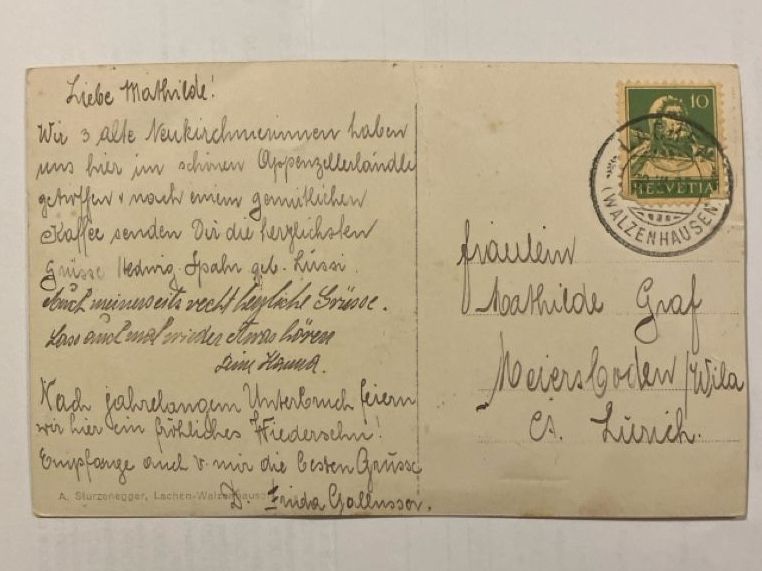 Liebe Mathilde!
Wir 3 alte Neukirchnerinnen haben
uns hier im schönen Appenzellerländle
getroffen & nach einem gemütlichen
Kaffee senden Dir die herzlichsten
Grüsse Hedwig Spahn geb. Lüssi.
Auch meinerseits recht herzliche Grüsse.
Lass auch mal wieder etwas hören
Deine Hanna.
Nach jahrelangem Unterbruch feiern
wir hier ein fröhliches Wiedersehn!
Empfange auch v. mir die besten Grüsse
D. Frida
A. Sturzenegger, Lachen-Walzenhausen
10
HELVETIA
LACHEN
(WALZENHAUSEN)
Fräulein
Mathilde Graf
Meiersboden/Wila
Ct. Zürich.